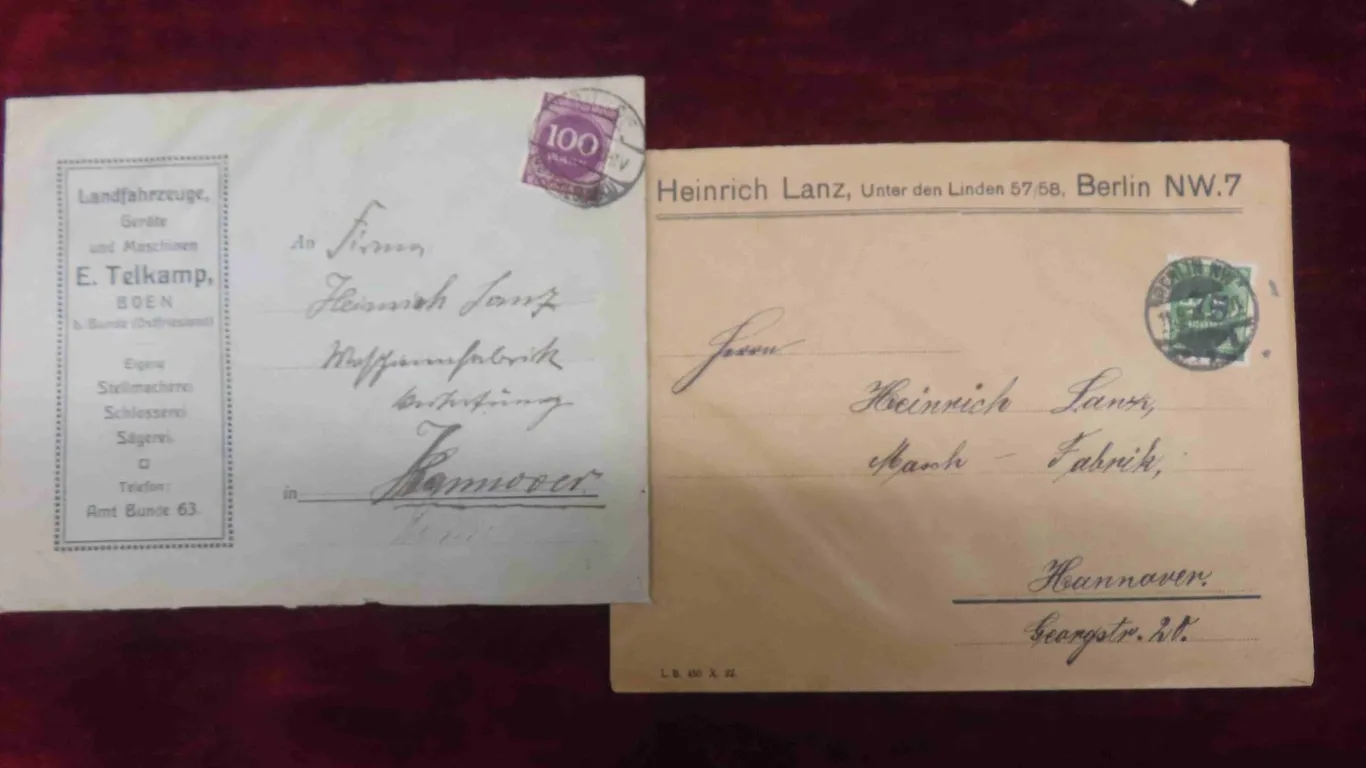 Landfahrzeuge,
Geräte
und Maschinen
E. Telkamp,
BOEN
b. Bunde (Ostfriesland)
Eigene
Stellmacherei
Schlosserei
Sägerei.
Telefon:
Amt Bunde 63.
100
An Firma
Heinrich Lanz
Maschinenfabrik
in Hannover.
Heinrich Lanz, Unter den Linden 57/58, Berlin NW.7
BERLIN NW
75
Herrn
Heinrich Lanz,
Masch - Fabrik,
Hannover.
Georgstr. 20.
L. B. 450 X. 22.